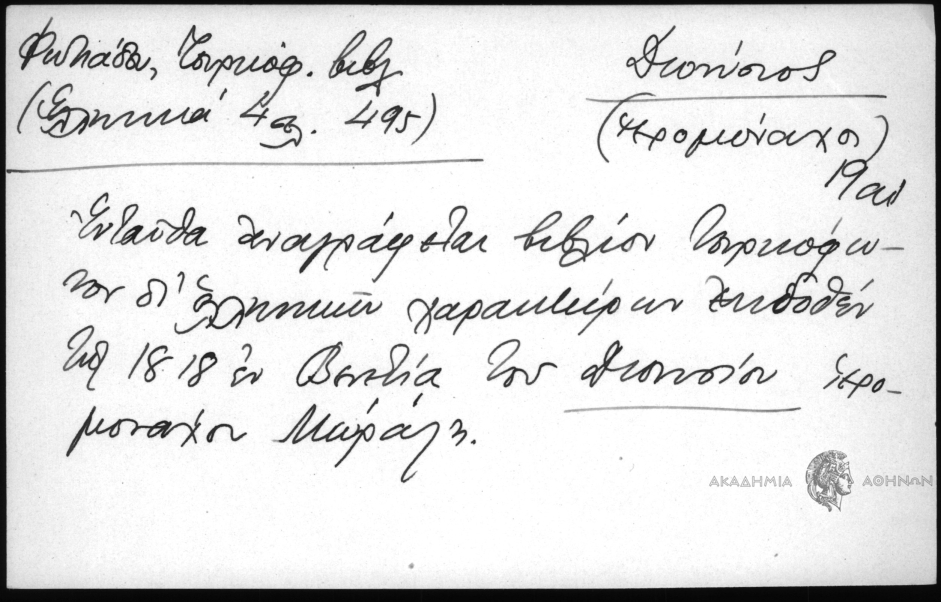 Φωτιάδου, Τουρκόφ. βιβλ.
(Ἑλληνικά 4 σελ. 495)
Διονύσιος
(ἱερομόναχος)
19 αἰ
Ἐνταῦθα ἀναγράφεται βιβλίον τουρκόφω-
νον δι' ἑλληνικῶν χαρακτήρων ἐκδοθέν
τῷ 1818 ἐν Βενετίᾳ τοῦ Διονυσίου ἱερο-
μονάχου
ΑΚΑΔΗΜΙΑ ΑΘΗΝΩΝ